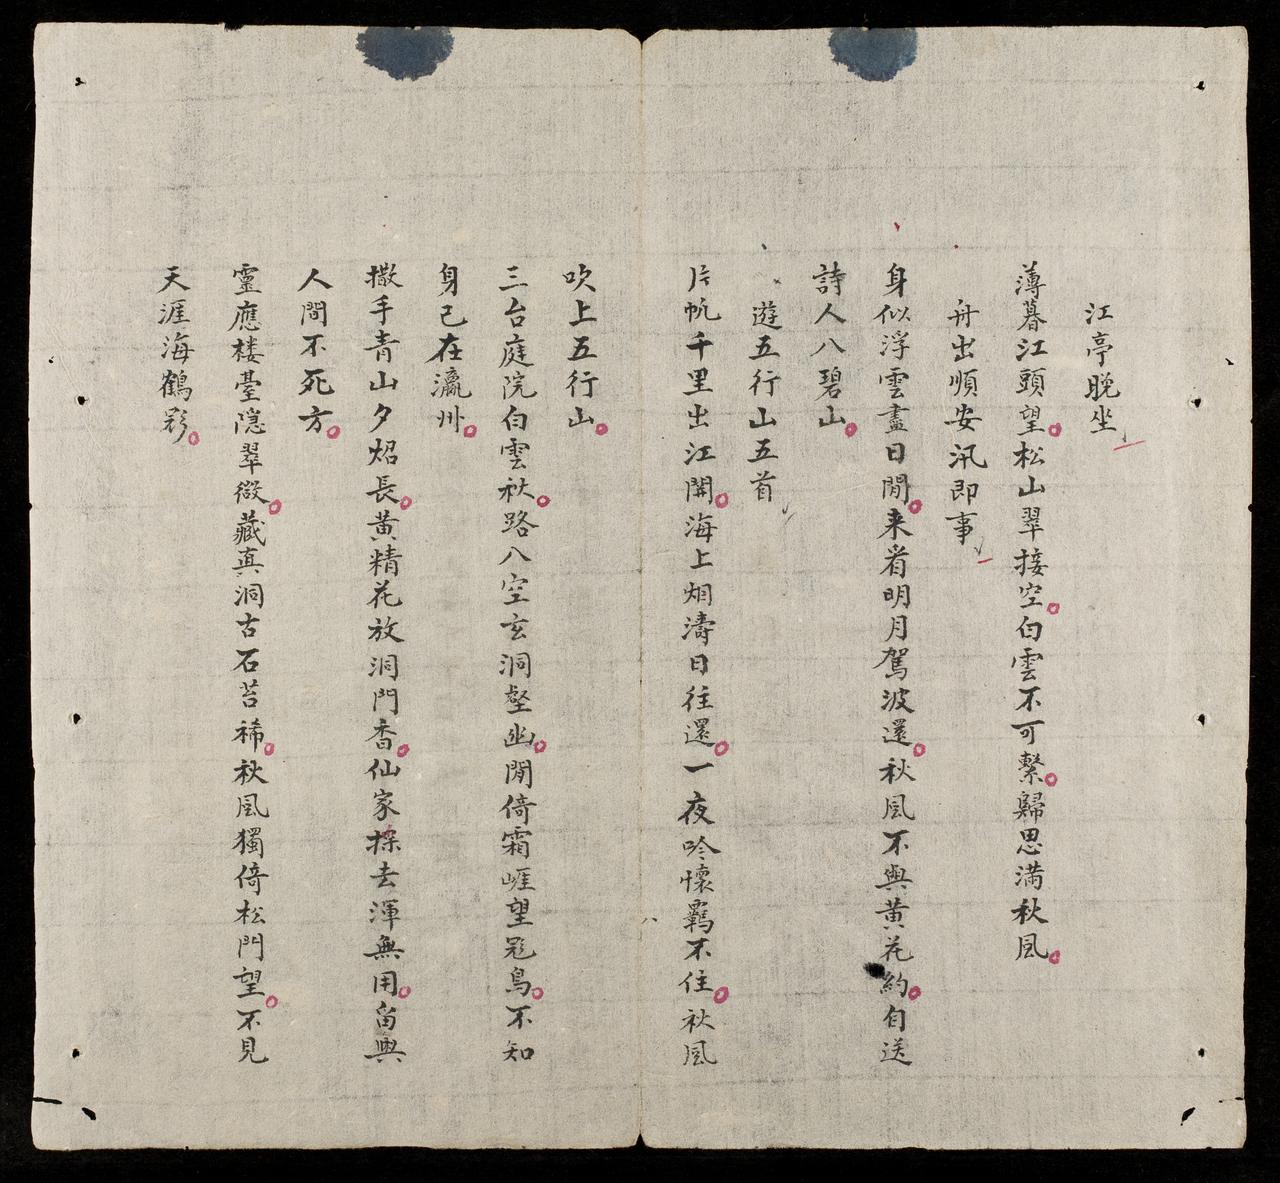 江亭晚坐
薄暮江頭望松山翠接空白雲不可繫歸思滿秋風
舟出順安汛即事
身似浮雲盡日閒来看明月駕波還秋風不與黄花約自送
詩人入碧山
遊五行山五首
片帆千里出江關海上烟濤日往還一夜吟懷羈不住秋風
吹上五行山
三台庭院白雲秋路入空玄洞壑幽閒倚霜崕望鳥不知
身已在瀛州
撒手青山夕炤長黄精花放洞門香仙家採去渾無用留與
人間不死方
靈應楼臺隠翠微藏真洞古石苔稀秋風獨倚松門望不見
天涯海鶴